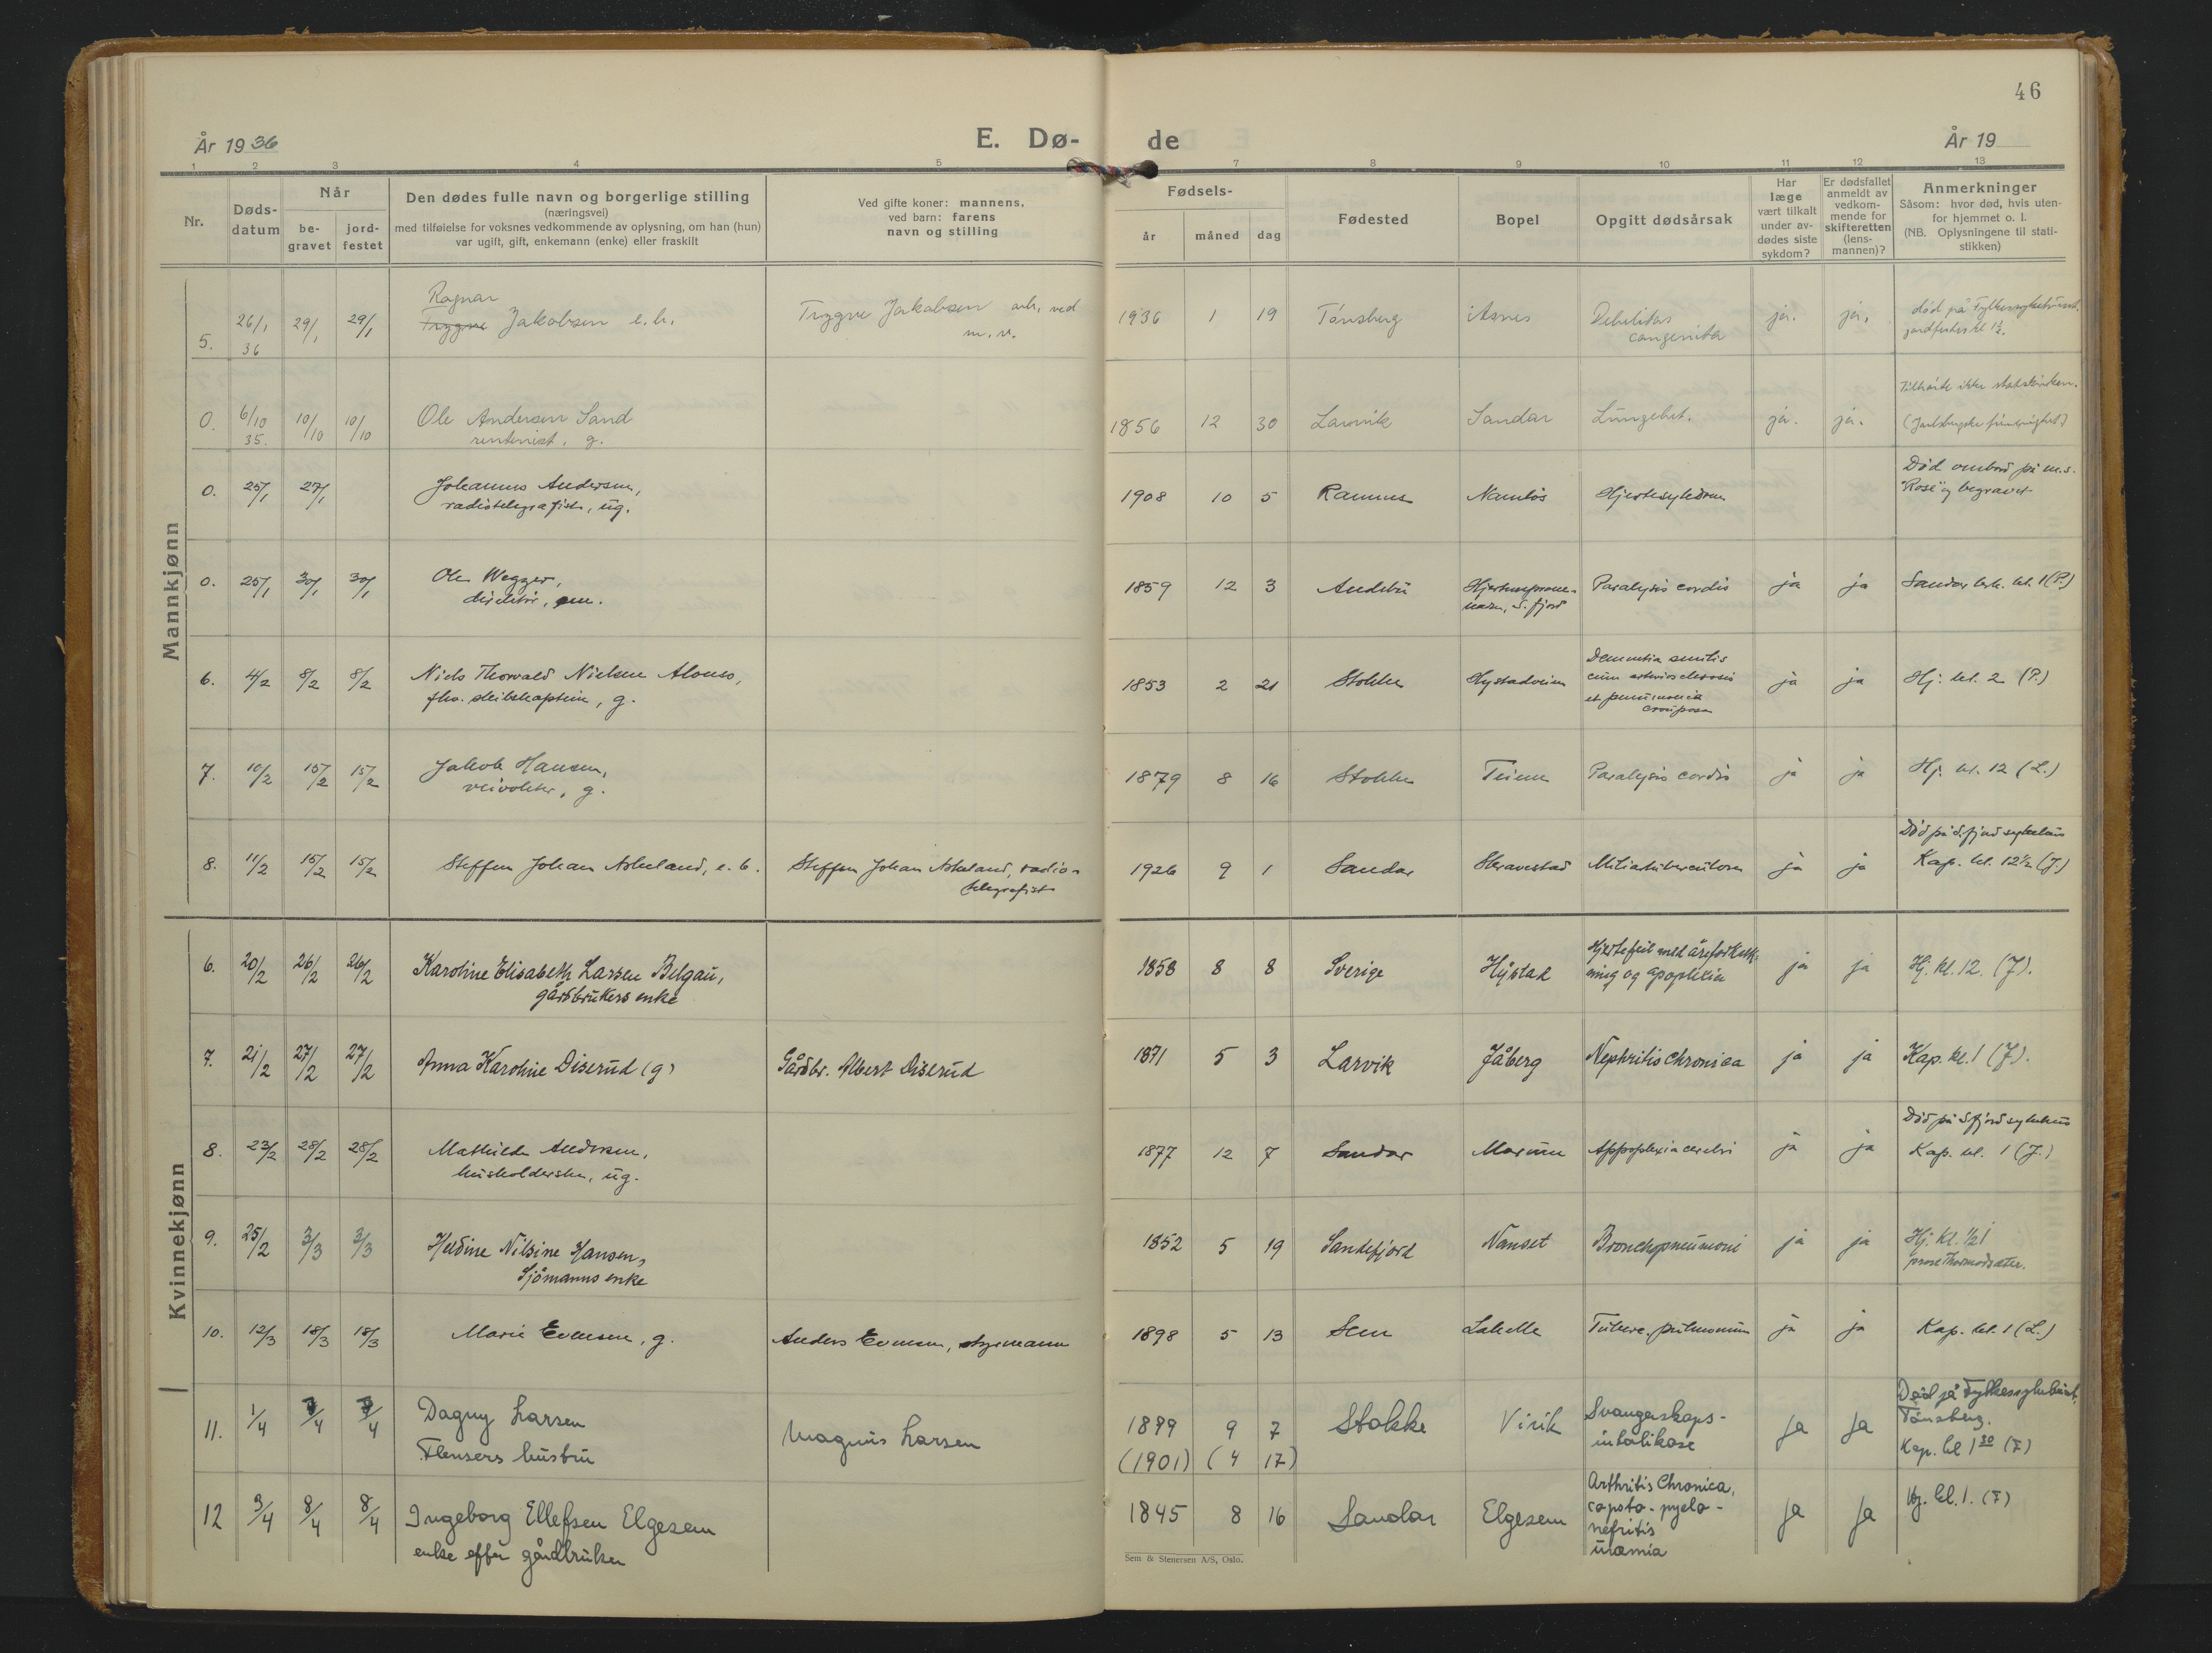 46
År 1936
E. Dø-
de
År 19
1 2 3 4 5 7 8 9 10 11 12 13
Nr.
Døds-
datum
Når
be-
gravet
jord-
festet
Den dødes fulle navn og borgerlige stilling
(næringsvei)
med tilføielse for voksnes vedkommende av oplysning, om han (hun)
var ugift, gift, enkemann (enke) eller fraskilt
Ved gifte koner: mannens,
ved barn: farens
navn og stilling
Fødsels-
år måned dag
Fødested
Bopel
Opgitt dødsårsak
Har
læge
vært tilkalt
under av-
dødes siste
sykdom?
Er dødsfallet
anmeldt av
vedkom-
mende for
skifteretten
(lens-
mannen)?
Anmerkninger
Såsom: hvor død, hvis uten-
for hjemmet o. l.
(NB. Oplysningene til stati-
stikken)
Mannkjønn
5. 26/1 36 29/1 29/1
Ragnar
Tryggve Jakobsen e.b.
Tryggve Jakobsen arb. ved
m.v.
1936 1 19 Tønsberg Debilitas
congenita
ja. ja.
død på Fylkessykehuset.
jordfestes kl 1½.
0. 6/10 35. 10/10 10/10
Ole Andersen Sand
rentenist, g.
1856 12 30 Larvik Sandar Lungebet. ja. ja.
Tilhørte ikke statskirken.
0. 25/1 27/1
Johannes Andersen,
radiotelegrafist, ug.
1908 10 5 Ramnes Namløs Hjertesykdom
Død ombord på m.s.
"Rose" og begravet
0. 25/1 30/1 30/1
Ole Wegger,
direktør, em.
1859 12 3 Andebu
S. fjord
Paralysis cordis ja ja
Sandar kirk. kl. 1 (P.)
6. 4/2 8/2 8/2
Niels Thorvald Nielsen Alonso,
fhv. skibskaptein, g.
1853 2 21 Stokke Hystadveien
Dementia senilis
cum arteriosclerosis
et pneumonia
crouposa
ja ja
Hj. kl. 2 (P.)
7. 10/2 15/2 15/2
Jakob Hansen,
veivokter, g.
1879 8 16 Stokke Feium Paralysis cordis ja ja
Hj. kl. 12 (L.)
8. 11/2 15/2 15/2
Steffen Johan Askeland, e. b.
Steffen Johan Askeland, radio-
telegrafist
1926 9 1 Sandar Skravestad Miliærtuberculose ja ja
Død på S.fjord sykehus
Kap. kl. 12½ (J.)
Kvinnekjønn
6. 20/2 26/2 26/2
Karoline Elisabeth Larsen Belgau,
gårdbrukers enke
1858 8 8 Sverige Hystad
Hjertefeil med åreforkalk-
ning og apoplexia
ja ja
Hj. kl. 12. (J).
7. 21/2 27/2 27/2
Anna Karoline Diserud (g)
Gårdbr. Albert Diserud
1871 5 3 Larvik Jåberg Nephritis chronica ja ja
Kap. kl. 1 (J).
8. 23/2 28/2 28/2
Mathilde Andersen,
husholderske, ug.
1877 12 7 Sandar Marum Appoplexia cerebri ja ja
Død på S.fjord sykehus
Kap. kl. 1 (J.)
9. 25/2 3/3 3/3
Heldine Nilsine Hansen,
Sjömanns enke
1852 5 19 Sandefjord Nanset Bronchpneumoni ja ja
Hj. kl. ½1
prest Thormodsæter.
10. 12/3 18/3 18/3
Marie Evensen, g.
Anders Evensen, styrmann
1898 5 13 Sem Lakelle Tuberc. pulmonum ja ja
Kap. kl. 1 (L.)
11. 1/4 7/4 7/4
Dagny Larsen
Flensers hustru
Magnus Larsen
1899 9 7
(1901) (4 17)
Stokke Virik
Svangerskaps-
intoksikose
Ja Ja
Død på Fylkessykehuset,
Tønsberg.
Kap. kl 1 30 (F)
12 3/4 8/4 8/4
Ingeborg Ellefsen Elgesem
enke efter gårdbruker
1845 8 16 Sandar Elgesem
Arthritis Chronica,
cysto-pyelo-
nefritis
uræmia
Ja Ja
Hj. kl. 1. (F)
Sem & Stenersen A/S, Oslo.